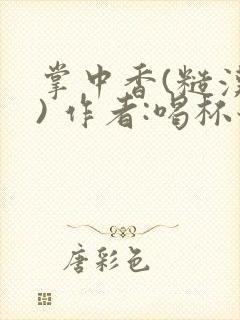 掌中香(糙汉
) 作者:喝杯
唐彩色